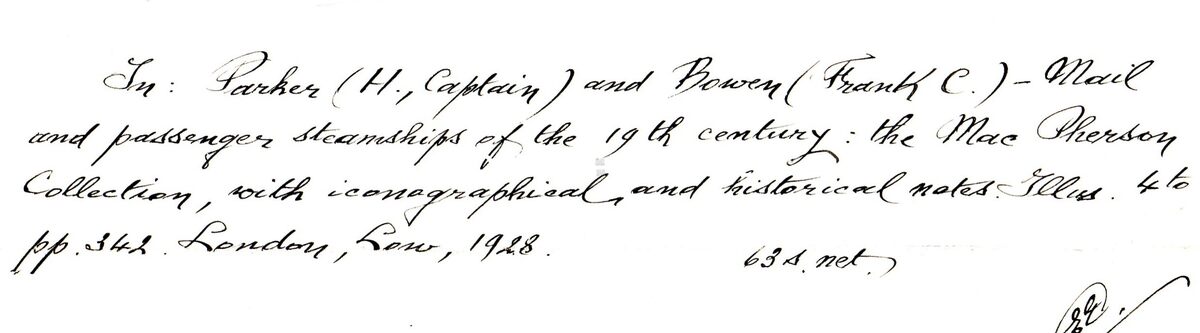 In: Parker (H., Captain) and Bowen (Frank C.) – Mail
and passenger steamships of the 19th century: the Mac Pherson
Collection, with iconographical and historical notes. Illus. 4to
pp. 342. London, Low, 1928.
63 s. net.